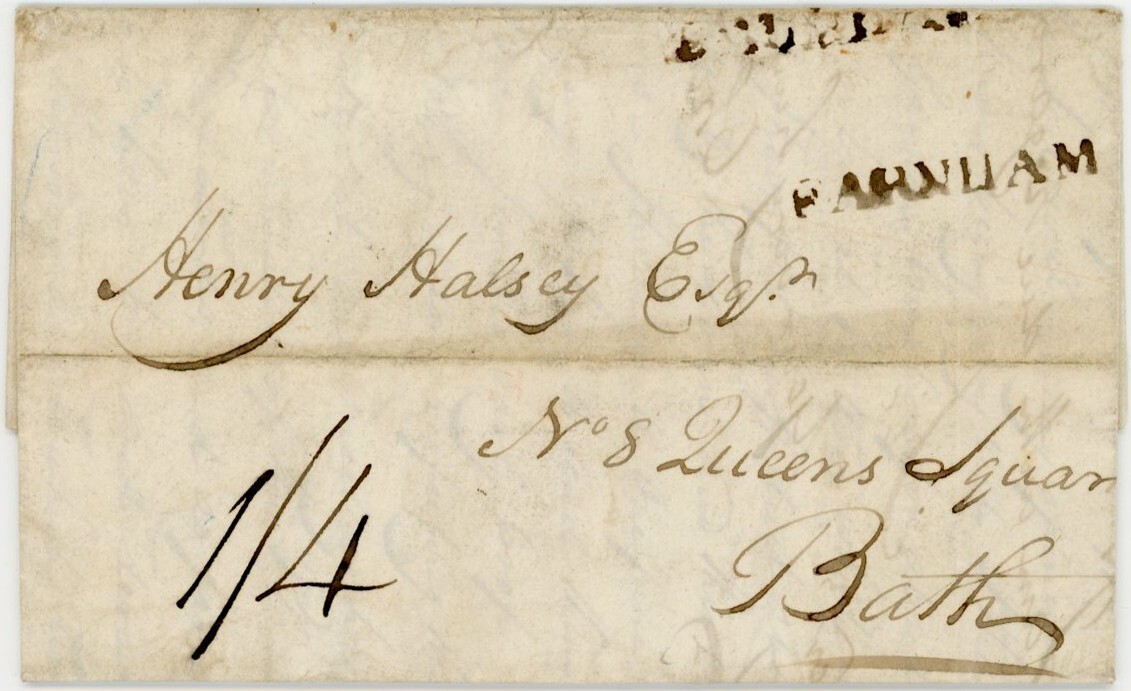 FARNHAM
Henry Halsey Esqr.
No 8 Queens Squar
Bath
1/4